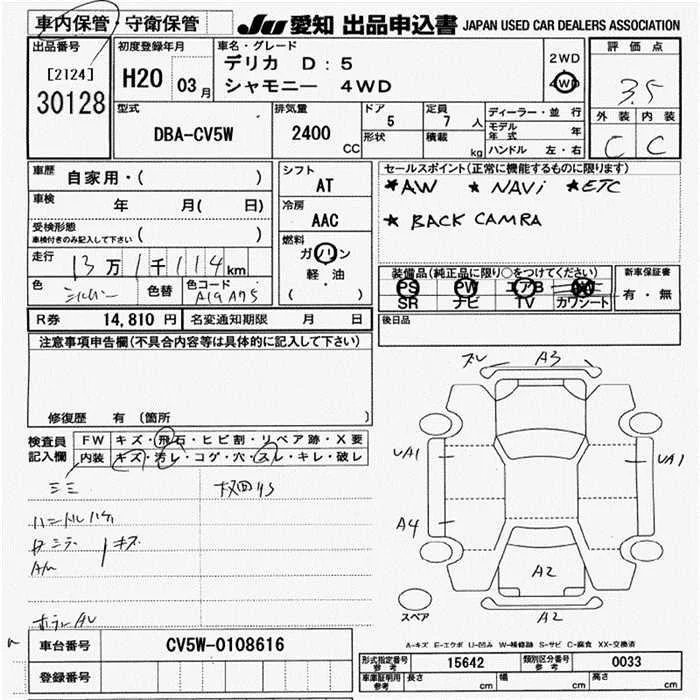 車内保管・守衛保管 JU 愛知 出品申込書 JAPAN USED CAR DEALERS ASSOCIATION
出品番号 初度登録年月 車名・グレード 評価点
[2124] H20 03月 デリカ D:5 2WD
30128 シャモニー 4WD 4WD 3.5
型式 排気量 ドア 定員 ディーラー・並行 外装 内装
DBA-CV5W 2400 CC 5 7人 モデル年式 年 C C
形状 積載 kg ハンドル 左・右
車歴 自家用・( ) シフト AT セールスポイント(正常に機能するものに限ります)
車検 年 月( 日) 冷房 AAC ★AW ★NAVi ★ETC
受検形態 車検付きのみ記入して下さい ( ) ★BACK CAMRA
走行 13万1千114km 燃料 ガソリン 軽・油 ( )
装備品(純正品に限り○をつけてください) 新車保証書
色 シルバー 色替 色コード A19 A75 PS PW エアB 有・無
SR ナビ TV カワシート
R券 14,810円 名変通知期限 月 日 後日品
注意事項申告欄(不具合内容等は具体的に記入して下さい)
修復歴 有 (箇所 )
検査員記入欄 FW キズ・飛石・ヒビ割・リペア跡・X要
内装 キズ・汚レ・コゲ・穴・スレ・キレ・破レ
ズレ A3
UA1 UA1
A4
A2
スペア A2
A-キズ E-エクボ U-凹み W-補修跡 S-サビ C-腐食 XX-交換済
車台番号 CV5W-0108616
登録番号
形式指定番号 参考 15642 類別区分番号 参考 0033
車庫証明用 参考 長さ cm 幅 cm 高さ cm